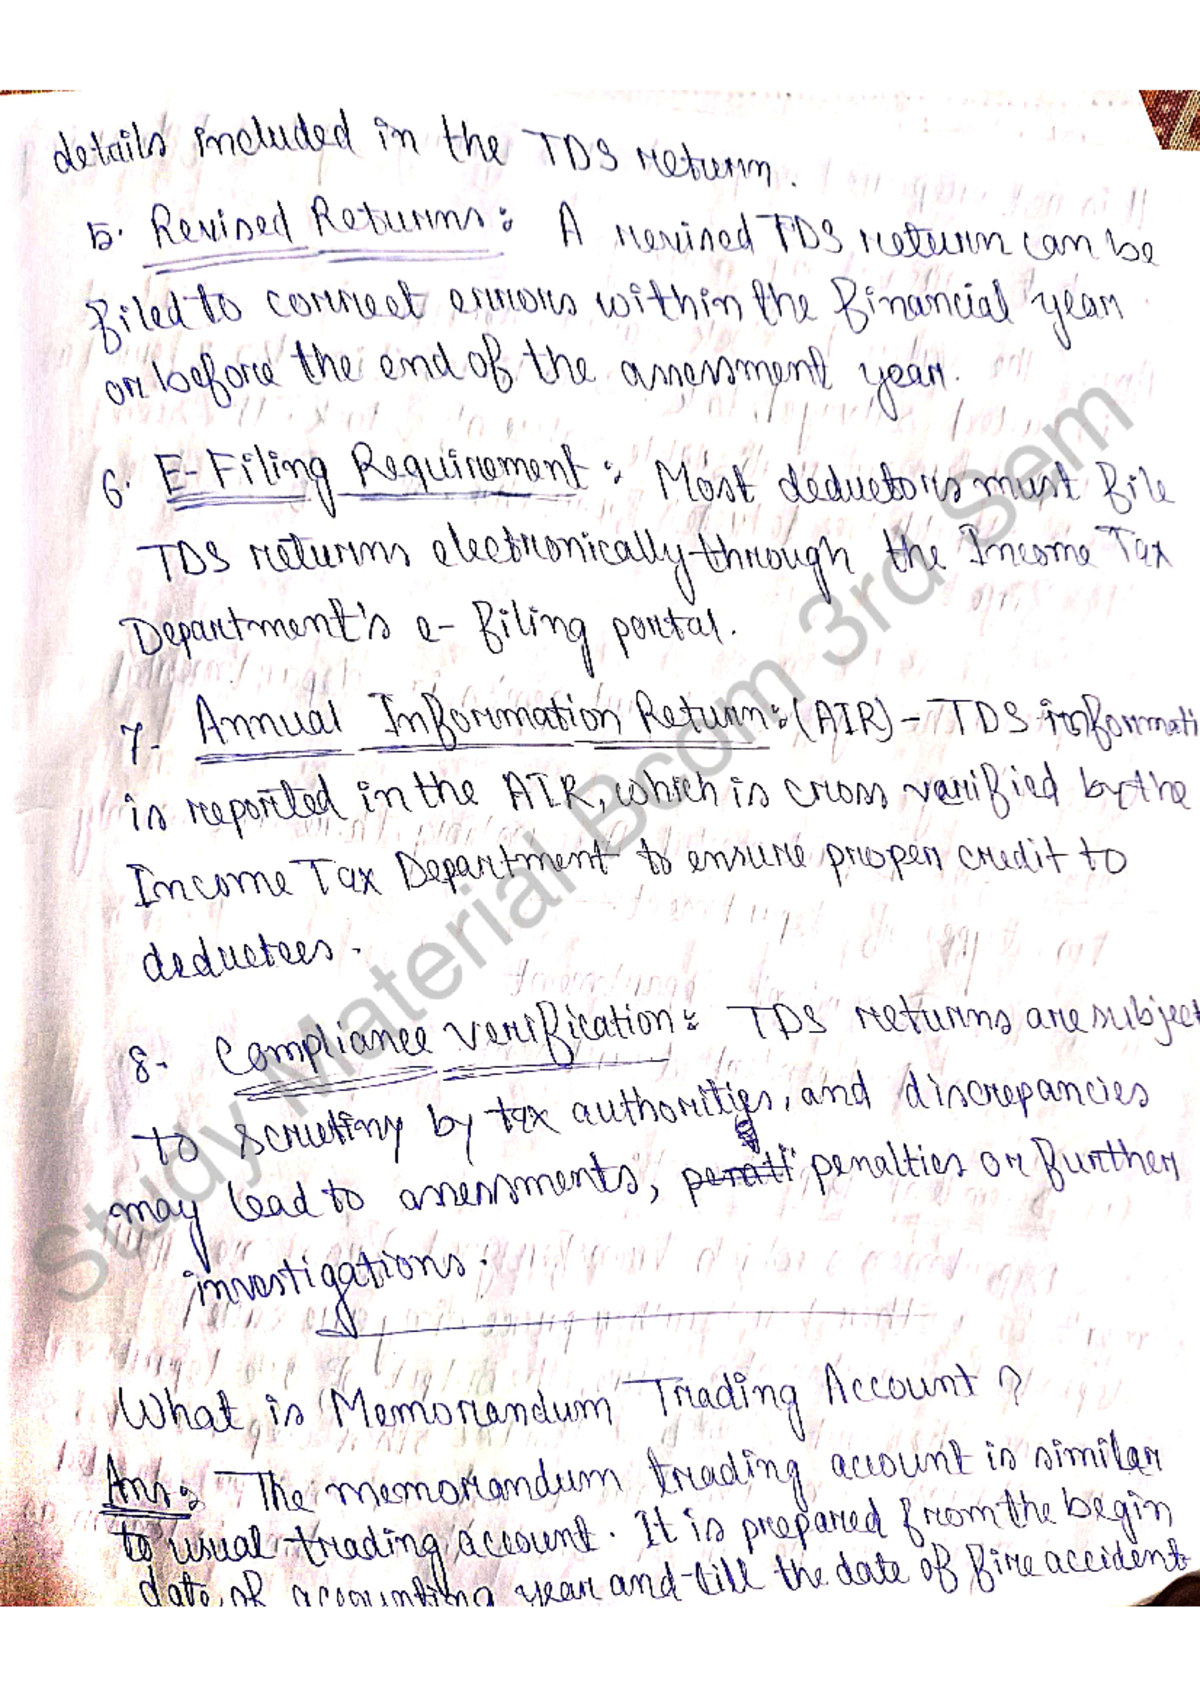 details included in the TDS return.
5. Revised Returns: A revised TDS return can be
filed to correct errors within the financial year
or before the end of the assessment year.
6. E-Filing Requirement: Most deductors must file
TDS returns electronically through the Income Tax
Department's e-filing portal.
7- Annual Information Return: (AIR) - TDS informati
is reported in the AIR, which is cross verified by the
Income Tax Department to ensure proper credit to
deductees.
8- Compliance verification: TDS returns are subject
to scrutiny by tax authorities, and discrepancies
may lead to assessments, penalties or further
investigations.
What is Memorandum Trading Account?
Ans: The memorandum trading account is similar
to usual trading account. It is prepared from the begin
date of accounting year and till the date of fire accident
Study Material Bcom 3rd Sem